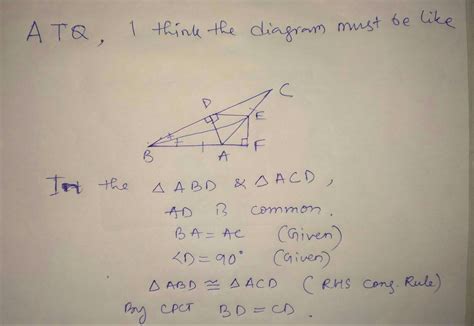 ATQ, I think the diagram must be like
C
D
E
B
A
F
In the △ABD & △ACD,
AD is common.
BA = AC (Given)
∠D = 90° (Given)
△ABD ≅ △ACD (RHS cong. Rule)
By CPCT BD = CD.